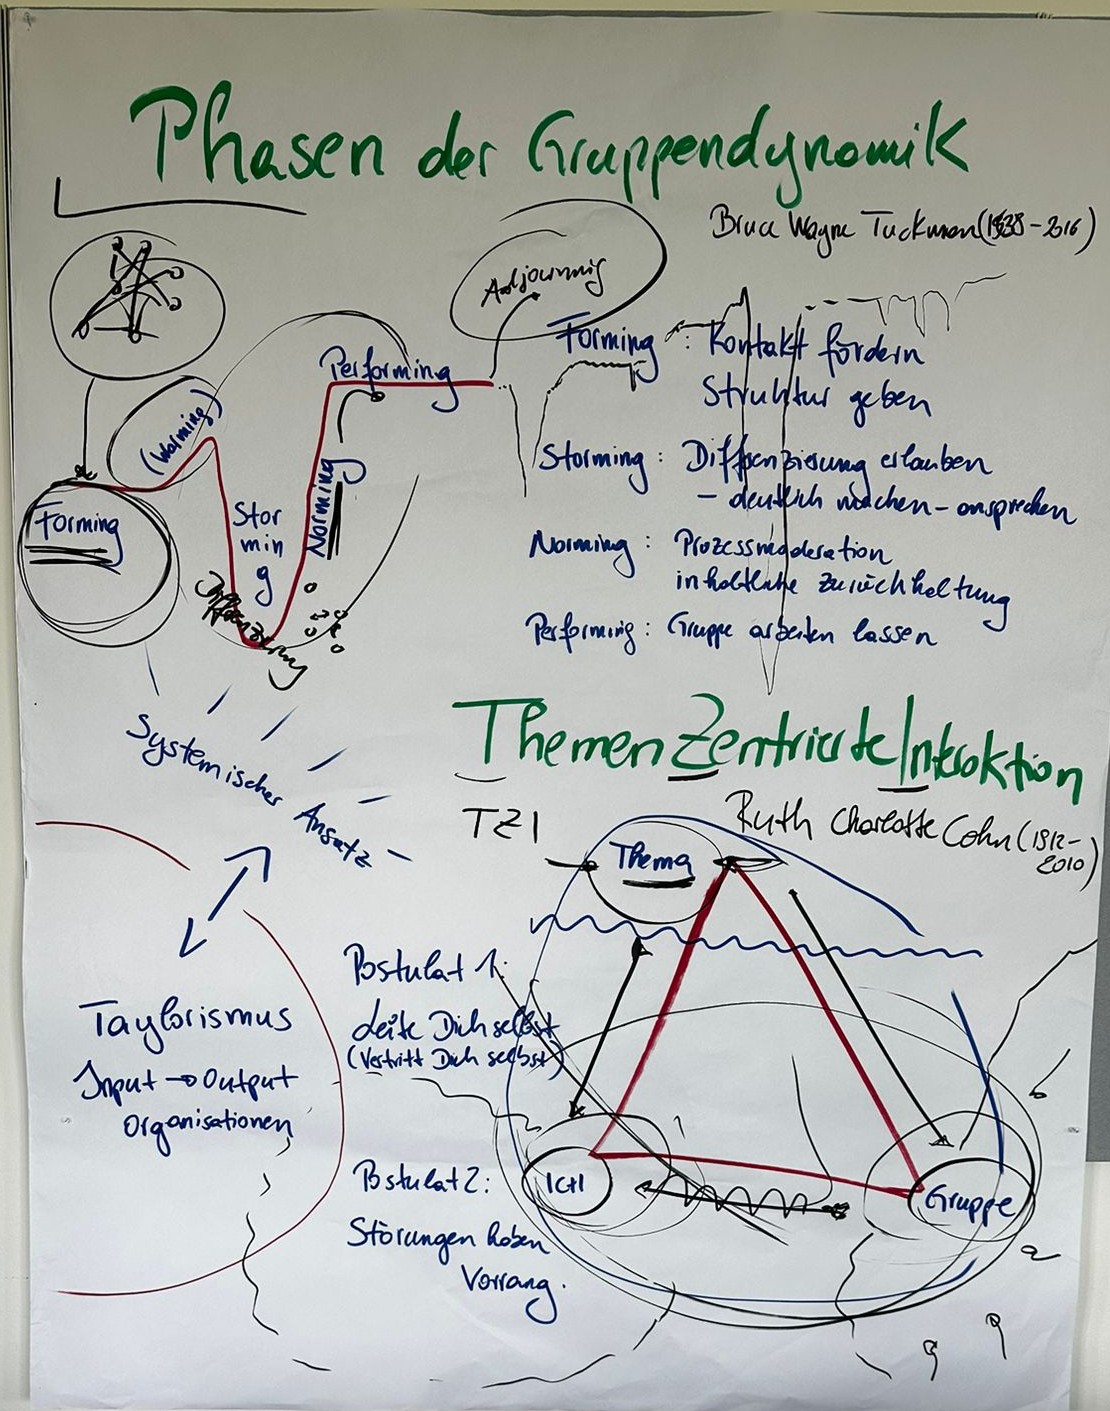 Phasen der Gruppendynamik
Bruce Wayne Tuckman (1938-2016)
Adjourning
Performing
(Warming)
Forming
Stor
min
g
Norming
Differenzierung
Forming : Kontakt fördern
Struktur geben
Storming : Differenzierung erlauben
- deutlich machen - ansprechen
Norming : Prozessmoderation
inhaltliche Zurückhaltung
Performing : Gruppe arbeiten lassen
Systemischer Ansatz
Taylorismus
Input → Output
Organisationen
ThemenZentrierte Interaktion
TZI
Ruth Charlotte Cohn (1912-
2010)
Thema
Ich
Gruppe
Postulat 1:
Leite Dich selbst
(Vertritt Dich selbst)
Postulat 2:
Störungen haben
Vorrang.